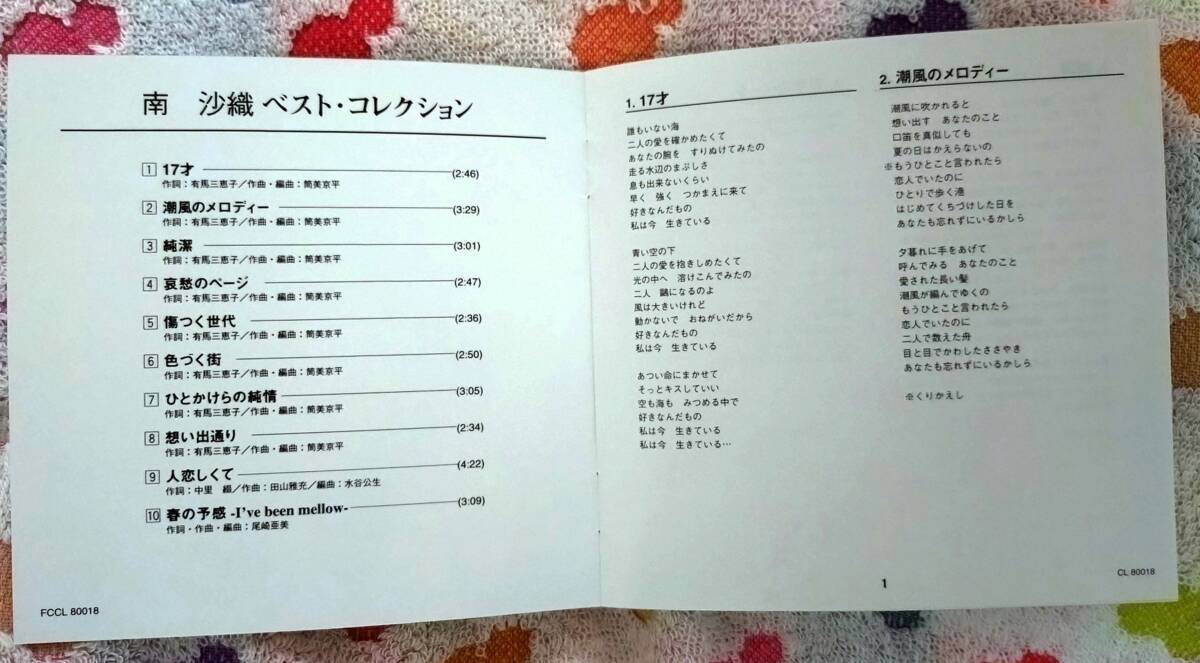 南　沙織 ベスト・コレクション
1 17才 (2:46)
作詞：有馬三恵子／作曲・編曲：筒美京平
2 潮風のメロディー (3:29)
作詞：有馬三恵子／作曲・編曲：筒美京平
3 純潔 (3:01)
作詞：有馬三恵子／作曲・編曲：筒美京平
4 哀愁のページ (2:47)
作詞：有馬三恵子／作曲・編曲：筒美京平
5 傷つく世代 (2:36)
作詞：有馬三恵子／作曲・編曲：筒美京平
6 色づく街 (2:50)
作詞：有馬三恵子／作曲・編曲：筒美京平
7 ひとかけらの純情 (3:05)
作詞：有馬三恵子／作曲・編曲：筒美京平
8 想い出通り (2:34)
作詞：有馬三恵子／作曲・編曲：筒美京平
9 人恋しくて (4:22)
作詞：中里　綴／作曲：田山雅充／編曲：水谷公生
10 春の予感 -I've been mellow- (3:09)
作詞・作曲・編曲：尾崎亜美
FCCL 80018
1. 17才
誰もいない海
二人の愛を確かめたくて
あなたの腕を　すりぬけてみたの
走る水辺のまぶしさ
息も出来ないくらい
早く　強く　つかまえに来て
好きなんだもの
私は今　生きている
青い空の下
二人の愛を抱きしめたくて
光の中へ　溶けこんでみたの
二人　鷗になるのよ
風は大きいけれど
動かないで　おねがいだから
好きなんだもの
私は今　生きている
あつい命にまかせて
そっとキスしていい
空も海も　みつめる中で
好きなんだもの
私は今　生きている
私は今　生きている…
2. 潮風のメロディー
潮風に吹かれると
想い出す　あなたのこと
口笛を真似しても
夏の日はかえらないの
※もうひとこと言われたら
恋人でいたのに
ひとりで歩く渚
はじめてくちづけした日を
あなたも忘れずにいるかしら
夕暮れに手をあげて
呼んでみる　あなたのこと
愛された長い髪
潮風が編んでゆくの
もうひとこと言われたら
恋人でいたのに
二人で数えた舟
目と目でかわしたささやき
あなたも忘れずにいるかしら
※くりかえし
1
CL 80018